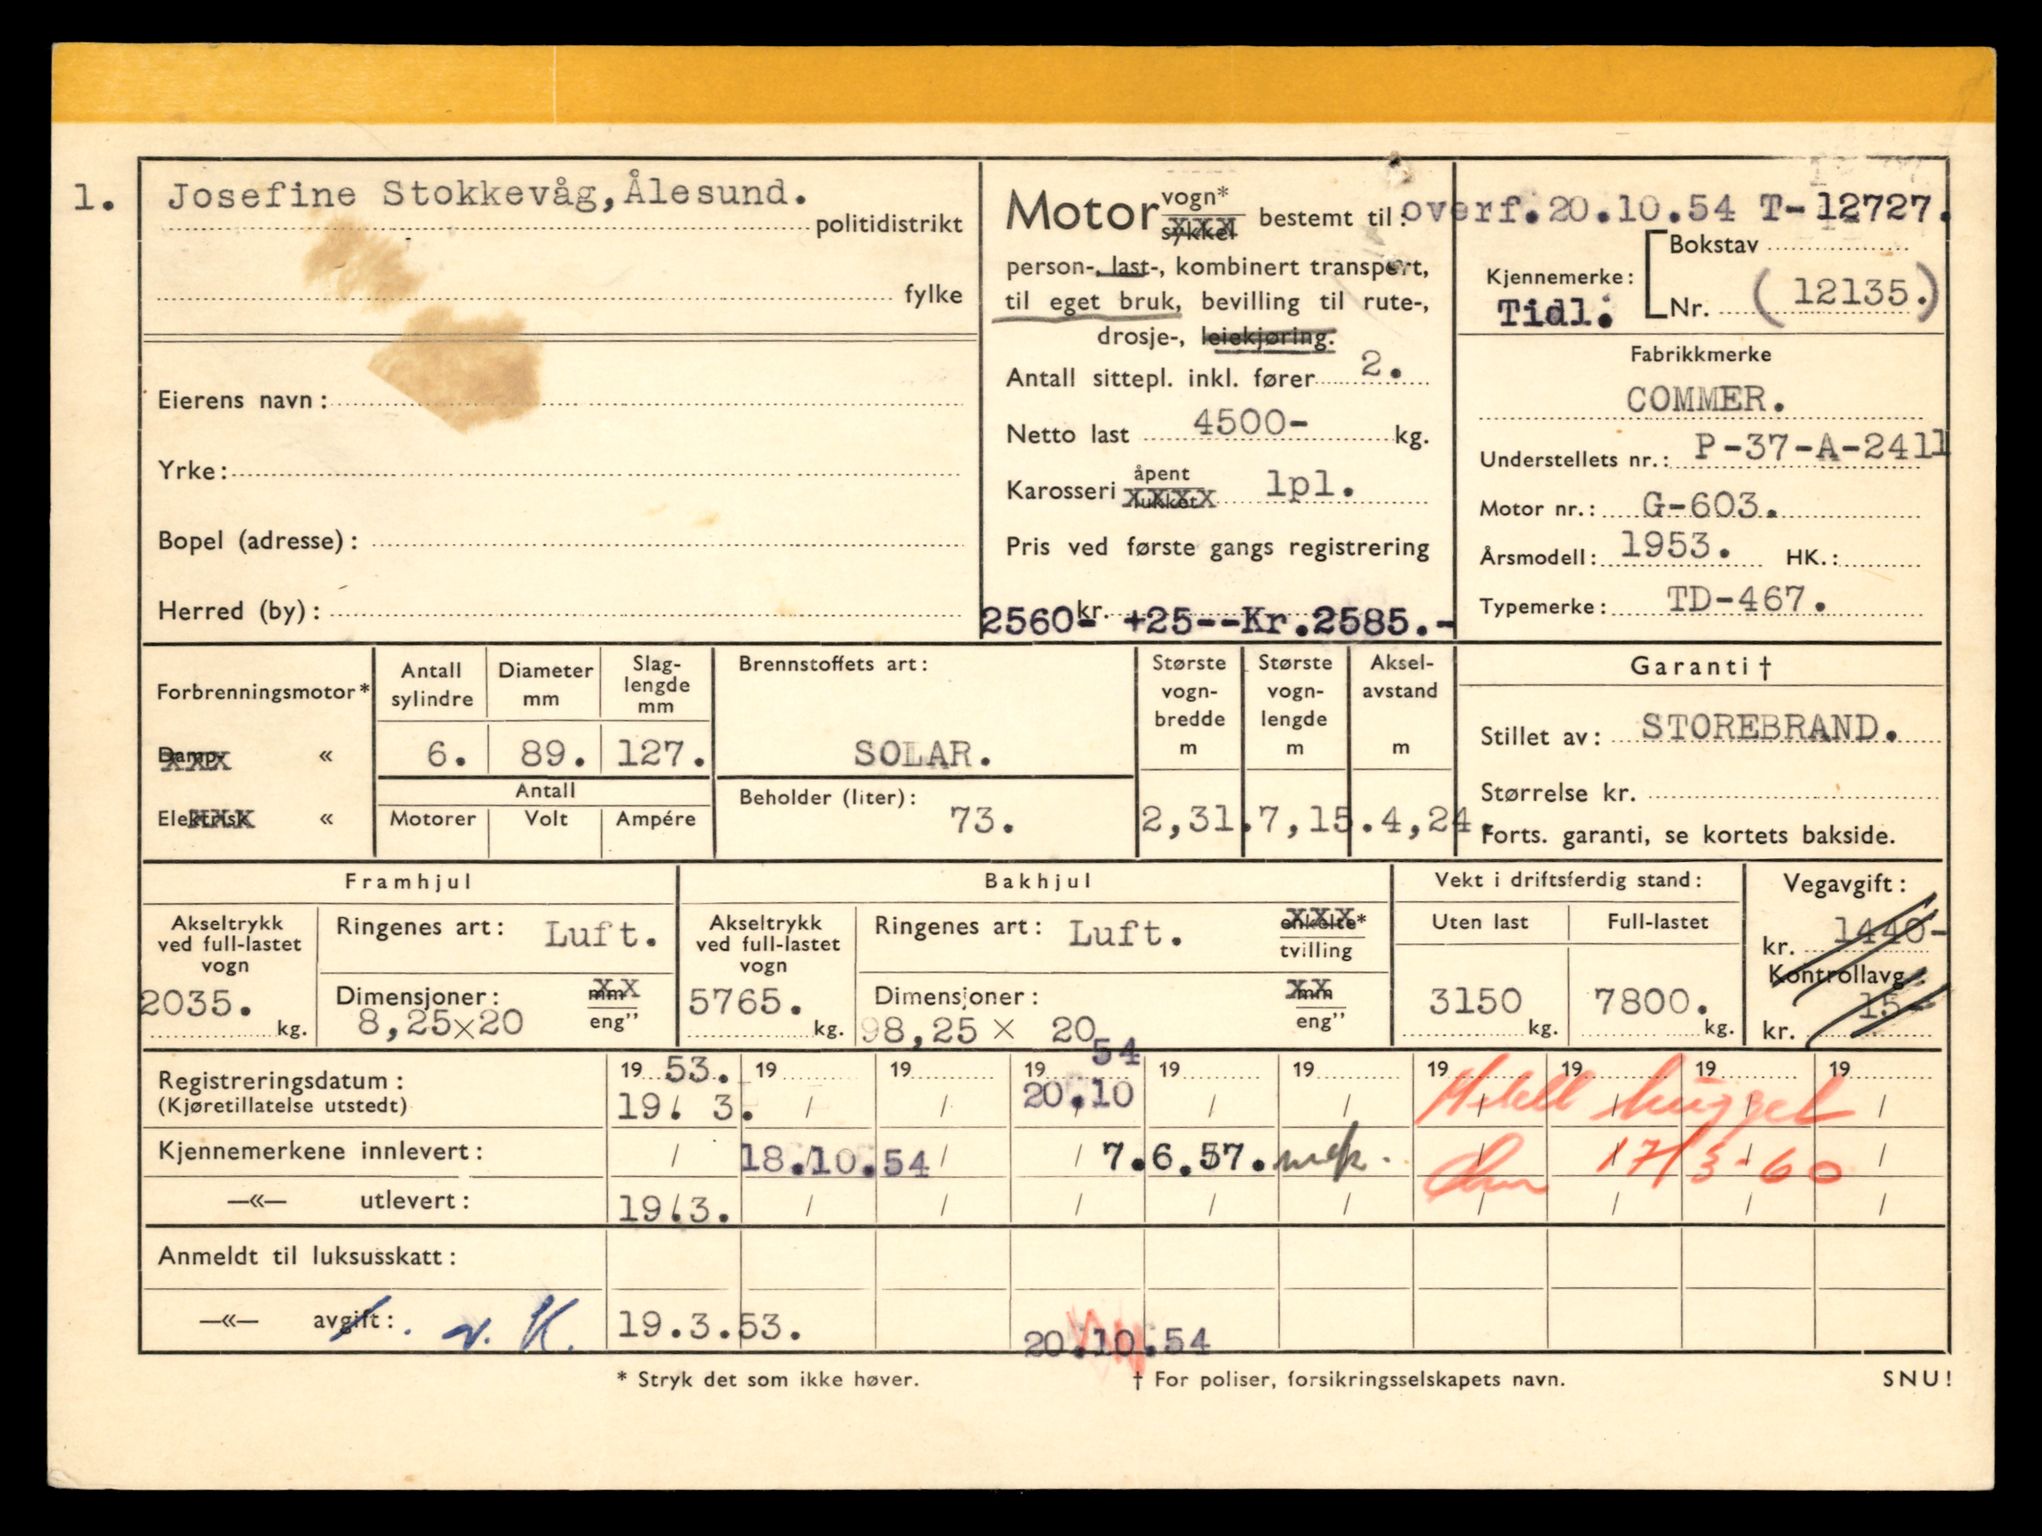 1. Josefine Stokkevåg, Ålesund.
politidistrikt
fylke
Eierens navn:
Yrke:
Bopel (adresse):
Herred (by):
Motor vogn* sykkel bestemt til:
person-, last-, kombinert transport,
til eget bruk, bevilling til rute-,
drosje-, leiekjøring.
Antall sittepl. inkl. fører 2.
Netto last 4500- kg.
Karosseri åpent lukket lpl.
Pris ved første gangs registrering
kr.
2560- +25--Kr.2585.-
overf.20.10.54 T-12727.
Kjennemerke: Bokstav
Tidl: Nr. (12135.)
Fabrikkmerke
COMMER.
Understellets nr.: P-37-A-2411
Motor nr.: G-603.
Årsmodell: 1953. HK.:
Typemerke: TD-467.
Forbrenningsmotor*
Damp- «
Elektrisk «
Antall sylindre
Diameter mm
Slag-lengde mm
6. 89. 127.
Antall
Motorer Volt Ampére
Brennstoffets art:
SOLAR.
Beholder (liter):
73.
Største vogn-bredde m
Største vogn-lengde m
Aksel-avstand m
2,31. 7,15. 4,24.
Garanti †
Stillet av: STOREBRAND.
Størrelse kr.
Forts. garanti, se kortets bakside.
Framhjul
Akseltrykk ved full-lastet vogn
2035. kg.
Ringenes art: Luft.
Dimensjoner: mm eng”
8,25×20
Bakhjul
Akseltrykk ved full-lastet vogn
5765. kg.
Ringenes art: Luft. enkelte* tvilling
Dimensjoner: mm eng”
98,25 × 20
Vekt i driftsferdig stand:
Uten last Full-lastet
3150 kg. 7800. kg.
Vegavgift:
kr. 1440-
Kontrollavg.:
kr. 15-
Registreringsdatum: 19 53. 19 19 19 54 19 19 19 19 19 19
(Kjøretillatelse utstedt) 19. 3. / / 20.10 / / / / / /
hugget
Kjennemerkene innlevert: / 18.10.54 / / 7.6.57. / / / /
17/3-60
—«— utlevert: 19.3. / / / / / / / / /
Anmeldt til luksusskatt:
—«— avgift: v. K. 19.3.53. 20.10.54
* Stryk det som ikke høver. † For poliser, forsikringsselskapets navn. SNU!